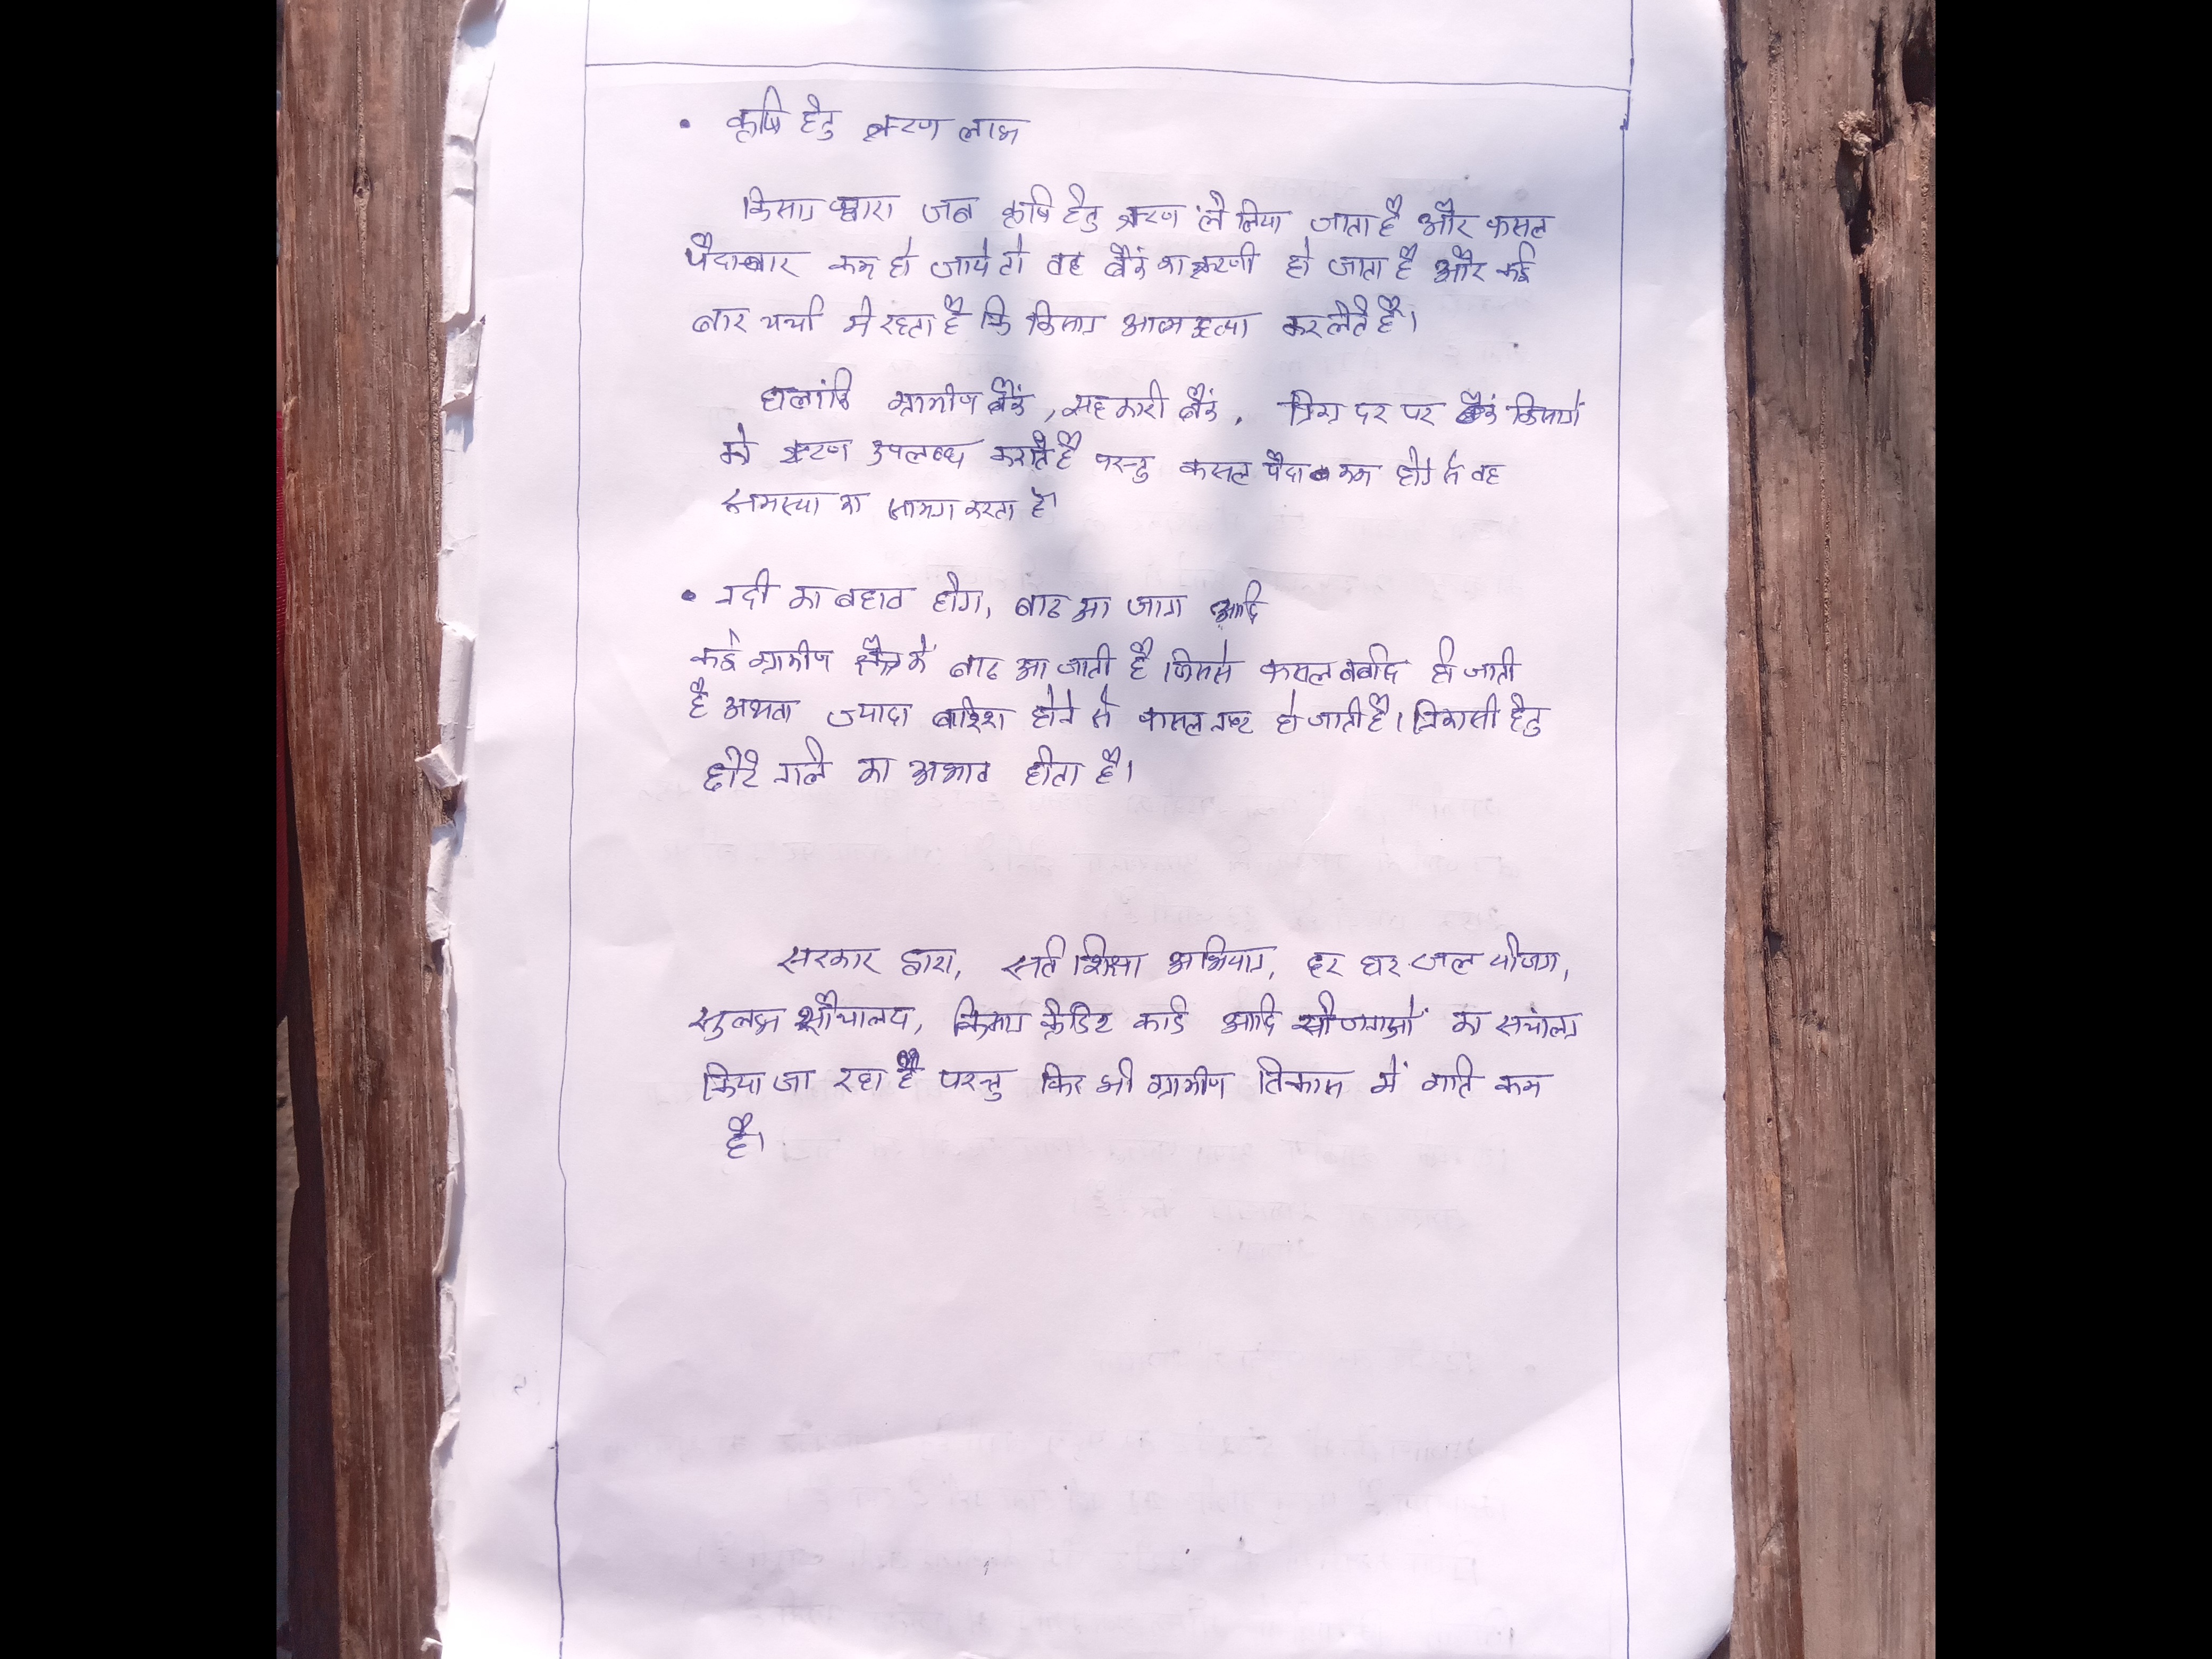 • कृषि हेतु ऋण लाभ
किसान द्वारा जब कृषि हेतु ऋण ले लिया जाता है और फसल
पैदावार कम हो जाये तो वह बैंक का ऋणी हो जाता है और कई
बार चर्चा में रहता है कि किसान आत्महत्या कर लेते है।
हालांकि ग्रामीण बैंक, सहकारी बैंक, निम्न दर पर किसानों
को ऋण उपलब्ध कराते है परन्तु फसल पैदा कम होने से वह
समस्या का सामना करता है।
• नदी का बहाव होना, बाढ आ जाना आदि
कई ग्रामीण क्षेत्र में बाढ आ जाती है जिससे फसल बर्बाद हो जाती
है अथवा ज्यादा बारिश होने से फसल नष्ट हो जाती है। निकासी हेतु
छोटे नाले का अभाव होता है।
सरकार द्वारा, सर्व शिक्षा अभियान, हर घर जल योजना,
सुलभ शौचालय, किसान क्रेडिट कार्ड आदि योजनाओं का सचांलन
किया जा रहा है परन्तु फिर भी ग्रामीण विकास में गति कम
है।